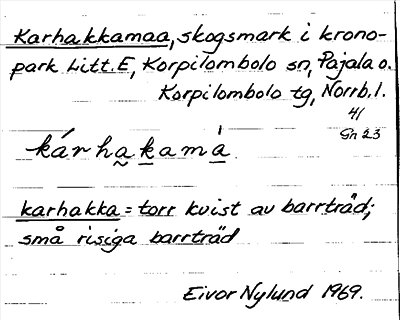 Karhakkamaa, skogsmark i krono-
park Litt. E, Korpilombolo sn, Pajala o.
Korpilombolo tg, Norrb. l.
41
Gn 23
kárha̰ḵamá̱
karhakka = torr kvist av barrträd;
små risiga barrträd
Eivor Nylund 1969.